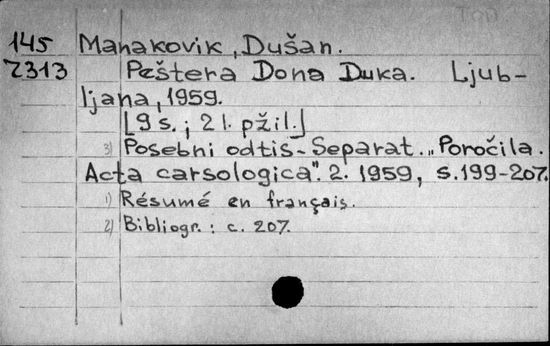 145 Manakovik, Dušan.
Z313 Peštera Dona Duka. Ljub-
ljana, 1959.
[9 s.; 2 l. pžil.]
3) Posebni odtis - Separat. „Poročila.
Acta carsologica". 2. 1959, s.199-207.
1) Résumé en français.
2) Bibliogr.: c. 207.